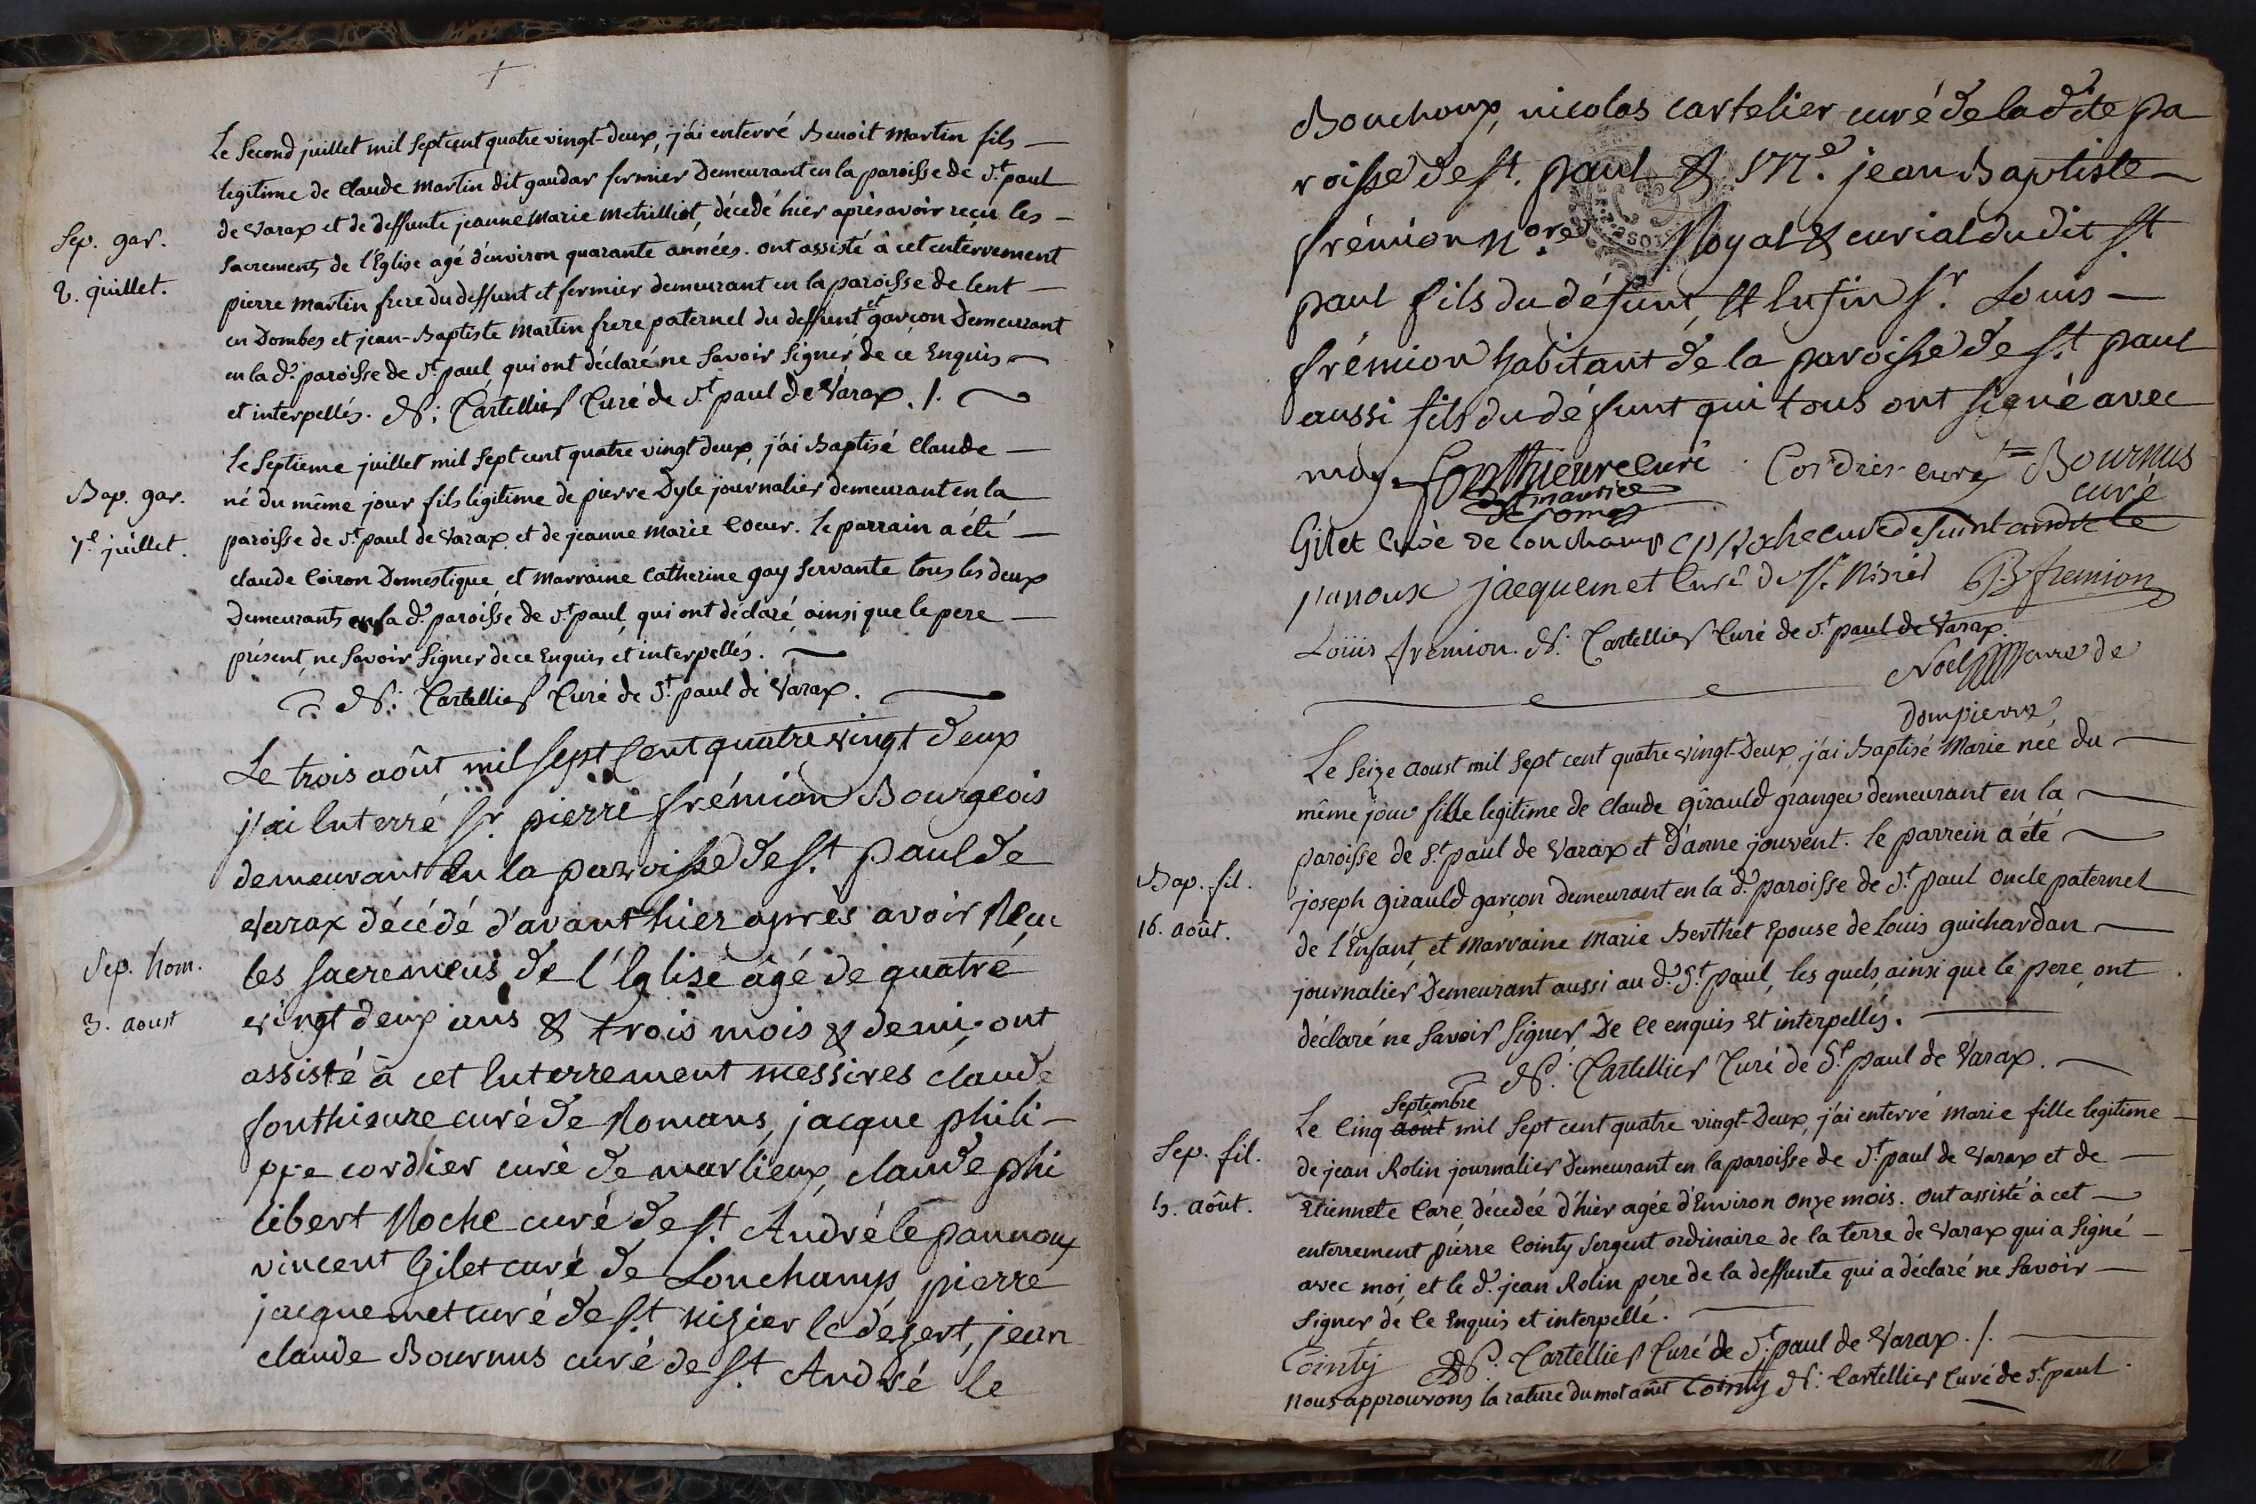 Le second juillet mil sept cent quatre vingt-deux, j'ai enterré Benoit Martin fils
legitime de Claude Martin dit gaudar fermier Demeurant en la paroisse de St. paul
de Varax et de deffunte jeanne Marie Metrilliot, décedé hier après avoir reçu les
Sep. gar.
sacrements de l'Eglise agé d'environ quarante années. ont assisté à cet enterrement
2. juillet.
pierre Martin frere du deffunt et fermier demeurant en la paroisse de lent
en Dombes et jean-Baptiste Martin frere paternel du deffunt et garçon Demeurant
en la de. paroisse de St. paul qui ont déclaré ne savoir signer de ce Enquis
et interpellés. N: Cartellier Curé de St. paul de Varax ./.
le septieme juillet mil sept cent quatre vingt deux, j'ai Baptisé Claude
Bap. gar.
né du même jour fils légitime de pierre Dyle journalier demeurant en la
7e juillet.
paroisse de St. paul de Varax et de jeanne Marie Coeur. le parrain a été
claude Coiron Domestique, et Marraine Catherine gay servante tous les deux
Demeurants en la de. paroisse de St. paul, qui ont déclaré, ainsi que le pere
présent, ne savoir signer de ce Enquis et interpellés.
N: Cartellier Curé de St. paul de Varax.
Le trois août mil sept Cent quatre vingt deux
j'ai Enterré Sr. pierre frémion Bourgeois
demeurant En la paroisse de St. paul de
Varax décédé d'avant hier après avoir Reçu
Sep. hom.
les sacremens de l'Eglise agé de quatre
3. aoust
vingt deux ans & trois mois & demi, ont
assisté à cet Enterrement messires claude
fonthieure curé de Romans, jacque phili-
ppe cordier curé de marlieux, claude phi
libert Roche curé de St. André le pannoux
vincent Gilet curé de Lonchamp, pierre
jacquemet curé de St. nizier le désert, jean
claude Bournus curé de St. André le
Bouchoux, nicolas cartelier curé de la dite pa
roisse de St. paul & Me. jean Baptiste
frémion nore. Royal & curial du dit St.
paul fils du défunt, & Enfin Sr. Louis
frémion habitant de la paroisse de St. paul
aussi fils du défunt qui tous ont signé avec
moy. fonthieure curé Cordier curé Bournus
curé
Gilet curé de Lonchamp cp Roche curé de saint andré le
panoux jacquemet Curé de St. Nisier JB fremion
Loüis fremion. N: Cartellier Curé de St. paul de Varax.
Noel curé de
Dompierre
Le seize aoust mil sept cent quatre vingt-deux, j'ai Baptisé Marie née du
même jour fille legitime de claude girauld granger demeurant en la
paroisse de St. paul de Varax et d'anne jouvent. le parrein a été
Bap. fil.
joseph girauld garçon demeurant en la de. paroisse de St. paul oncle paternel
16. août.
de l'Enfant, et Marraine Marie Berthet Epouse de Louis guichardan
journalier Demeurant aussi au d. St. paul, les quels, ainsi que le pere, ont
déclaré ne savoir signer, De ce enquis Et interpellés.
N: Cartellier Curé de St. paul de Varax.
septembre
Le Cinq août mil sept cent quatre vingt-Deux, j'ai enterré Marie fille legitime
Sep. fil.
de jean Rolin journalier demeurant en la paroisse de St. paul de Varax et de
5. août.
Etiennete Care décedée d'hier agée d'Environ onze mois. ont assisté à cet
enterrement pierre Cointy sergent ordinaire de la terre de Varax qui a signé
avec moi, et le d. jean Rolin pere de la deffunte qui a déclaré ne savoir
signer de ce Enquis et interpellé.
Cointy N: Cartellier Curé de St. paul de Varax ./.
Nous approuvons la rature du mot août Cointy N: Cartellier Curé de St. paul.